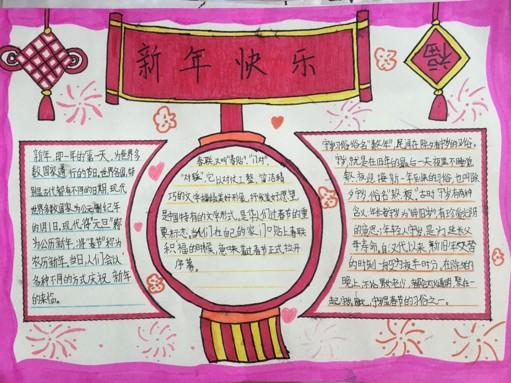 新年快乐
福
新年,即一年的第一天,为世界多
数国家通行的节日,世界各国,特
别是古代都有不同的日期,现代
世界多数国家为公元制纪年
的1月1日。现代将"元旦"称
为公历新年,将"春节"称为
农历新年。当日人们会以
多种不同的方式庆祝新年
的来临。
春联又叫"春贴"、"门对"、
"对联",它以对仗工整、简洁精
巧的文字描绘美好形象,抒发美好愿望,
是中国特有的文学形式,是人们过春节的重
要标志。当人们在自己的家门口贴上春联
和福字的时候,意味着过春节正式拉开
序幕。
守岁习俗俗名"熬年",是指在除夕夜守岁的习俗,
守岁,就是在旧年的最后一天夜里不睡觉
的习俗,也叫除
夕守岁,俗名"熬夜"。古时守岁有两种
含义:年长者守岁为"辞旧岁",有珍爱光阴
的意思;年轻人守岁,是为延长父
母寿命。自汉代以来,新旧年交替
的时刻一般为夜半时分,
晚上,灯火通明,聚在一
起,守岁是春节的习俗之一。